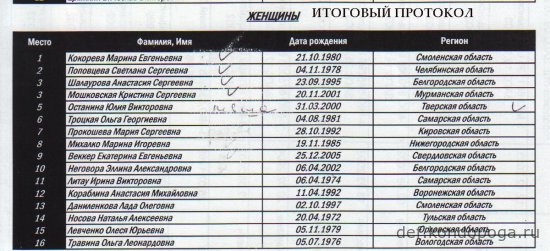 ЖЕНЩИНЫ ИТОГОВЫЙ ПРОТОКОЛ
Место Фамилия, Имя Дата рождения Регион
1 Кокорева Марина Евгеньевна 21.10.1980 Смоленская область
2 Поповцева Светлана Сергеевна 04.11.1978 Челябинская область
3 Шалаурова Анастасия Сергеевна 23.09.1995 Белгородская область
3 Мошковская Кристина Сергеевна 20.11.2001 Мурманская область
5 Останина Юлия Викторовна 31.03.2000 Тверская область
6 Троцкая Ольга Георгиевна 04.08.1981 Самарская область
7 Прокошева Мария Сергеевна 28.10.1992 Кировская область
8 Михалко Марина Игоревна 19.11.1985 Нижегородская область
9 Веккер Екатерина Евгеньевна 25.12.2005 Свердловская область
10 Неговора Эллина Александровна 06.04.2002 Белгородская область
11 Литау Ирина Викторовна 06.04.1974 Самарская область
12 Корабпина Анастасия Михайловна 11.04.1992 Воронежская область
13 Даниленкова Лада Олеговна 02.10.1997 Смоленская область
14 Носова Наталья Алексеевна 20.04.1972 Тульская область
15 Левченко Олеся Юрьевна 05.11.1979 Орловская область
16 Травина Ольга Леонардовна 05.07.1976 Вологодская область